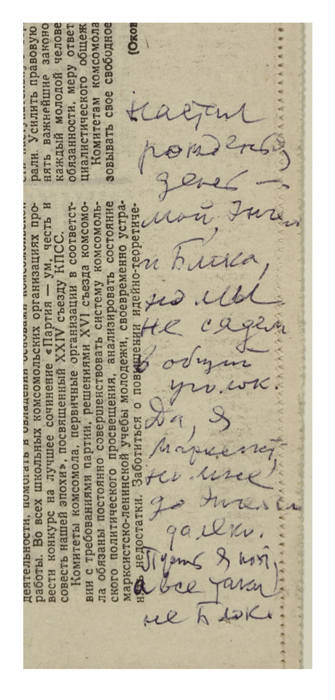 деятельности, помогать в овладении основами комсомольской
работы. Во всех школьных комсомольских организациях про-
вести конкурс на лучшее сочинение «Партия — ум, честь и
совесть нашей эпохи», посвященный XXIV съезду КПСС.
Комитеты комсомола, первичные организации в соответст-
вии с требованиями партии, решениями XVI съезда комсомо-
ла обязаны постоянно совершенствовать систему комсомоль-
ского политического просвещения, анализировать состояние
марксистско-ленинской учебы молодежи, своевременно устра-
недостатки. Заботиться о повышении идейно-теоретиче-
рали. Усилить правовую
нять важнейшие законо
каждый молодой челове
обязанности, меру ответ
циалистического общеж
Комитетам комсомола
зовывать свое свободное
(Окон
настал
рожденья
денек —
мой, Энгел
и Блока,
но мы
не сядем
в общий
уголок.
Да, я
марксист,
но мне
до Энгельса
далеко.
Пусть я поэт,
а все таки
не Блок.